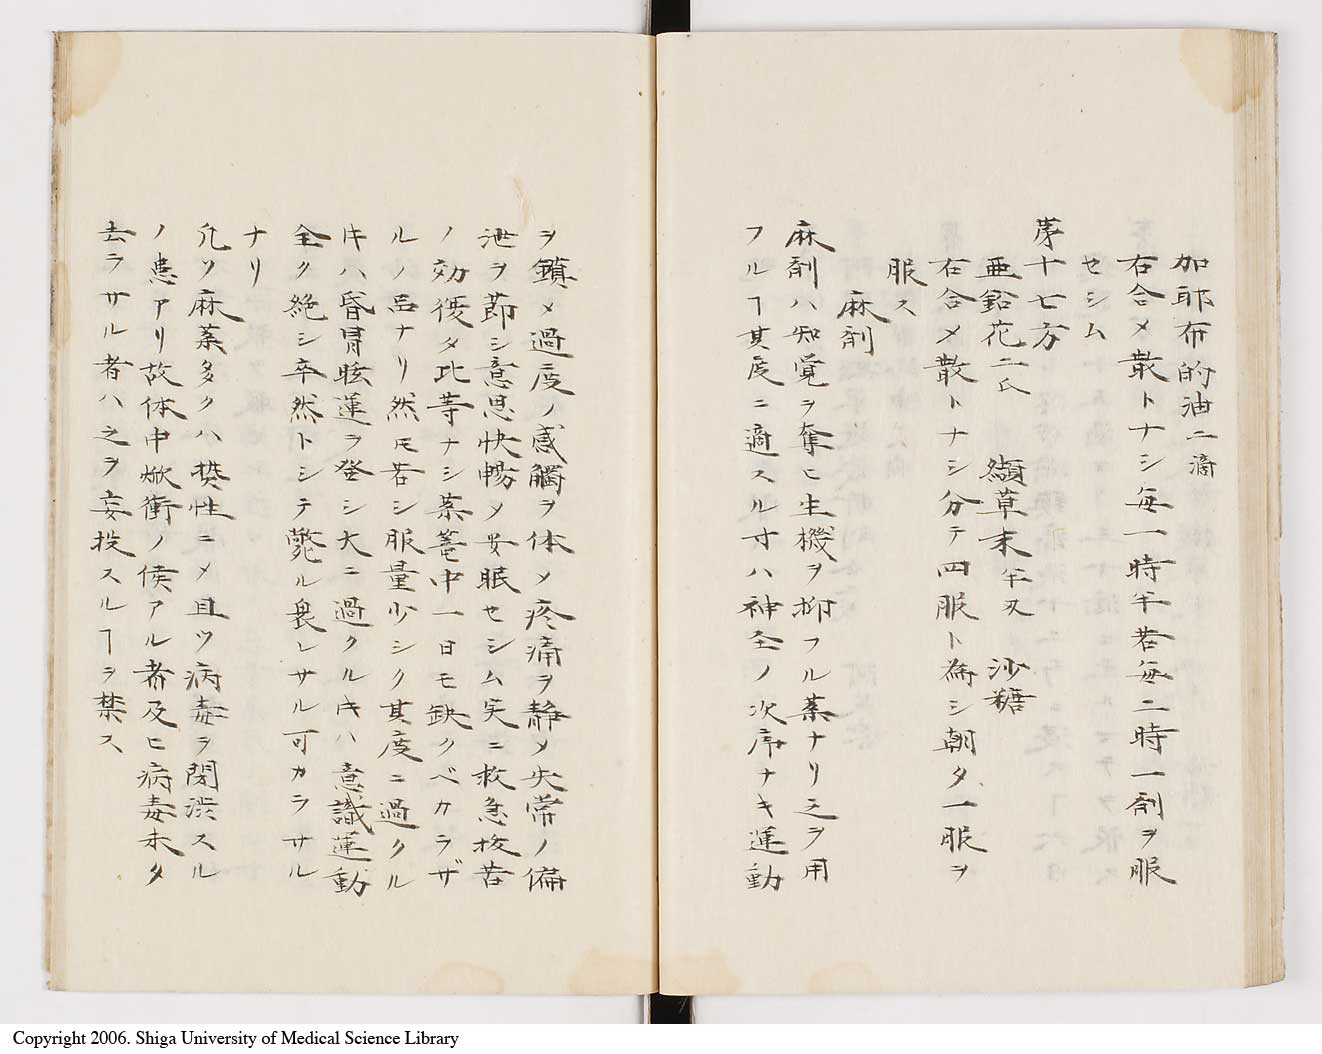 加耶布的油二滴
右合メ散トナシ毎一時半若毎二時一剤ヲ服
セシム
第十七方
亜鉛花二氏 纈草末半刄 沙糖
右合メ散トナシ分テ四服ト為シ朝夕一服ヲ
服ス
麻剤
麻剤ハ知覚ヲ奪ヒ生機ヲ抑フル薬ナリ之ヲ用
フルヿ其度ニ適スル寸ハ神圣ノ次序ナキ運動
ヲ鎮メ過度ノ感觸ヲ休メ疼痛ヲ静メ失常ノ偏
泄ヲ節シ意思快暢メ安眠セシム実ニ救急抜苦
ノ効復タ比等ナシ薬篭中一日モ缺クベカラザ
ルノ品ナリ然モ若シ服量少シク其度ニ過クル
キハ昏冒眩運ヲ発シ大ニ過クルキハ意識運動
全ク絶シ卒然トシテ斃ル畏レサル可カラサル
ナリ
凡ソ麻薬多クハ熱性ニメ且ツ病毒ヲ閉渋スル
ノ患アリ故体中焮衝ノ候アル者及ヒ病毒未タ
去ラサル者ハ之ヲ妄投スルヿヲ禁ス
Copyright 2006. Shiga University of Medical Science Library